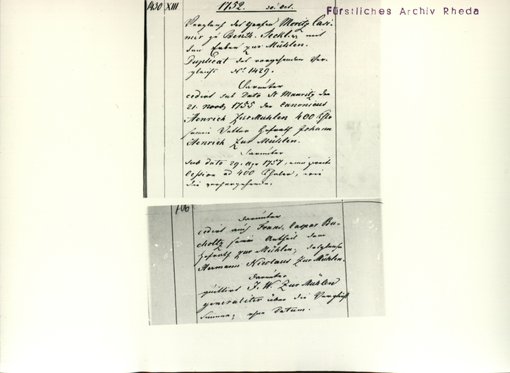 Fürstliches Archiv Rheda
1430 XIII 1752. 30. Oct.
Vergleich des Grafen Moritz Casi-
mir zu Benth. Tecklb. mit
den Erben zur Mühlen.
Duplicat des vorgehenden Ver-
gleichs No 1429.
Darunter
cedirt sub dato St Mauritz den
21. novb. 1755 der Canonicus
Henrich Zur Mühlen 400
seinen Vetter Hofrath Johann
Henrich Zur Mühlen.
Darunter
sub dato 29. 1757, eine zweite
Cession ad 400 Thaler, wie
die vorhergehende.
Darunter
cedirt auch Franz Caspar Bu-
choltz seinen Antheil dem
Hofrath zur Mühlen,
Hermann Nicolaus Zur Mühlen.
Darunter
quittirt J. W. Zur Mühlen
generaliter über die
Summe, ohne Datum.